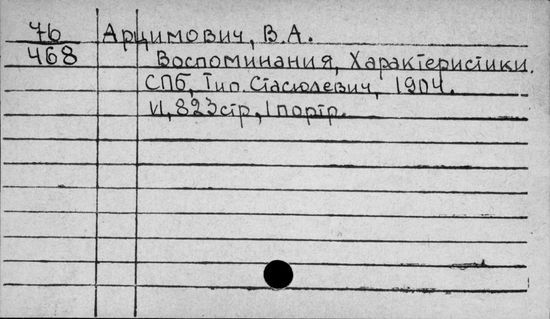 76 Арцимович, В.А.
468 Воспоминания, Характеристики.
СПб, Тип. Стасюлевич, 1904.
VI, 823 стр, 1 портр.